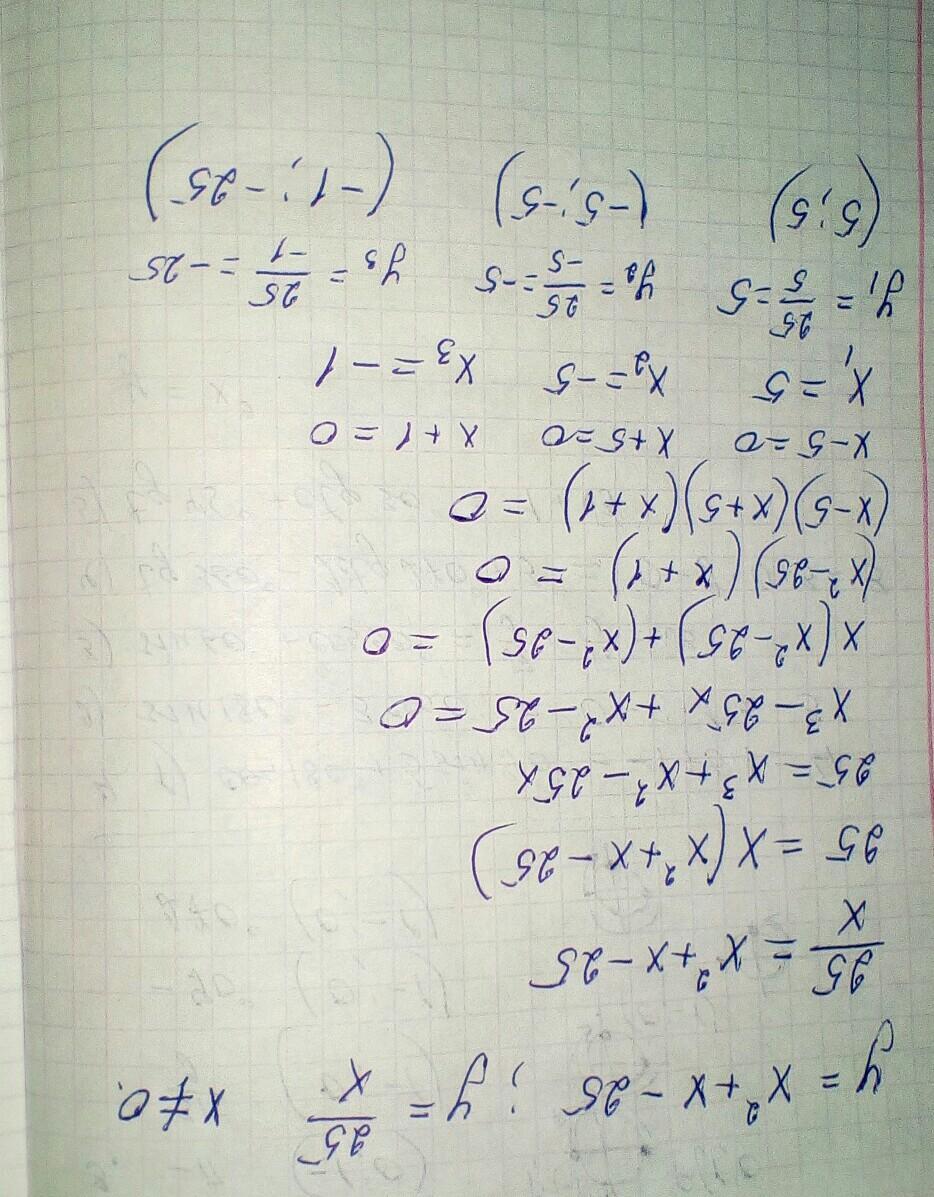 y = x² + x - 25 ; y = 25/x x ≠ 0.
25/x = x² + x - 25
25 = x(x² + x - 25)
25 = x³ + x² - 25x
x³ - 25x + x² - 25 = 0
x(x² - 25) + (x² - 25) = 0
(x² - 25)(x + 1) = 0
(x - 5)(x + 5)(x + 1) = 0
x - 5 = 0 x + 5 = 0 x + 1 = 0
x₁ = 5 x₂ = -5 x₃ = -1
y₁ = 25/5 = 5 y₂ = 25/-5 = -5 y₃ = 25/-1 = -25
(5; 5) (-5; -5) (-1; -25)